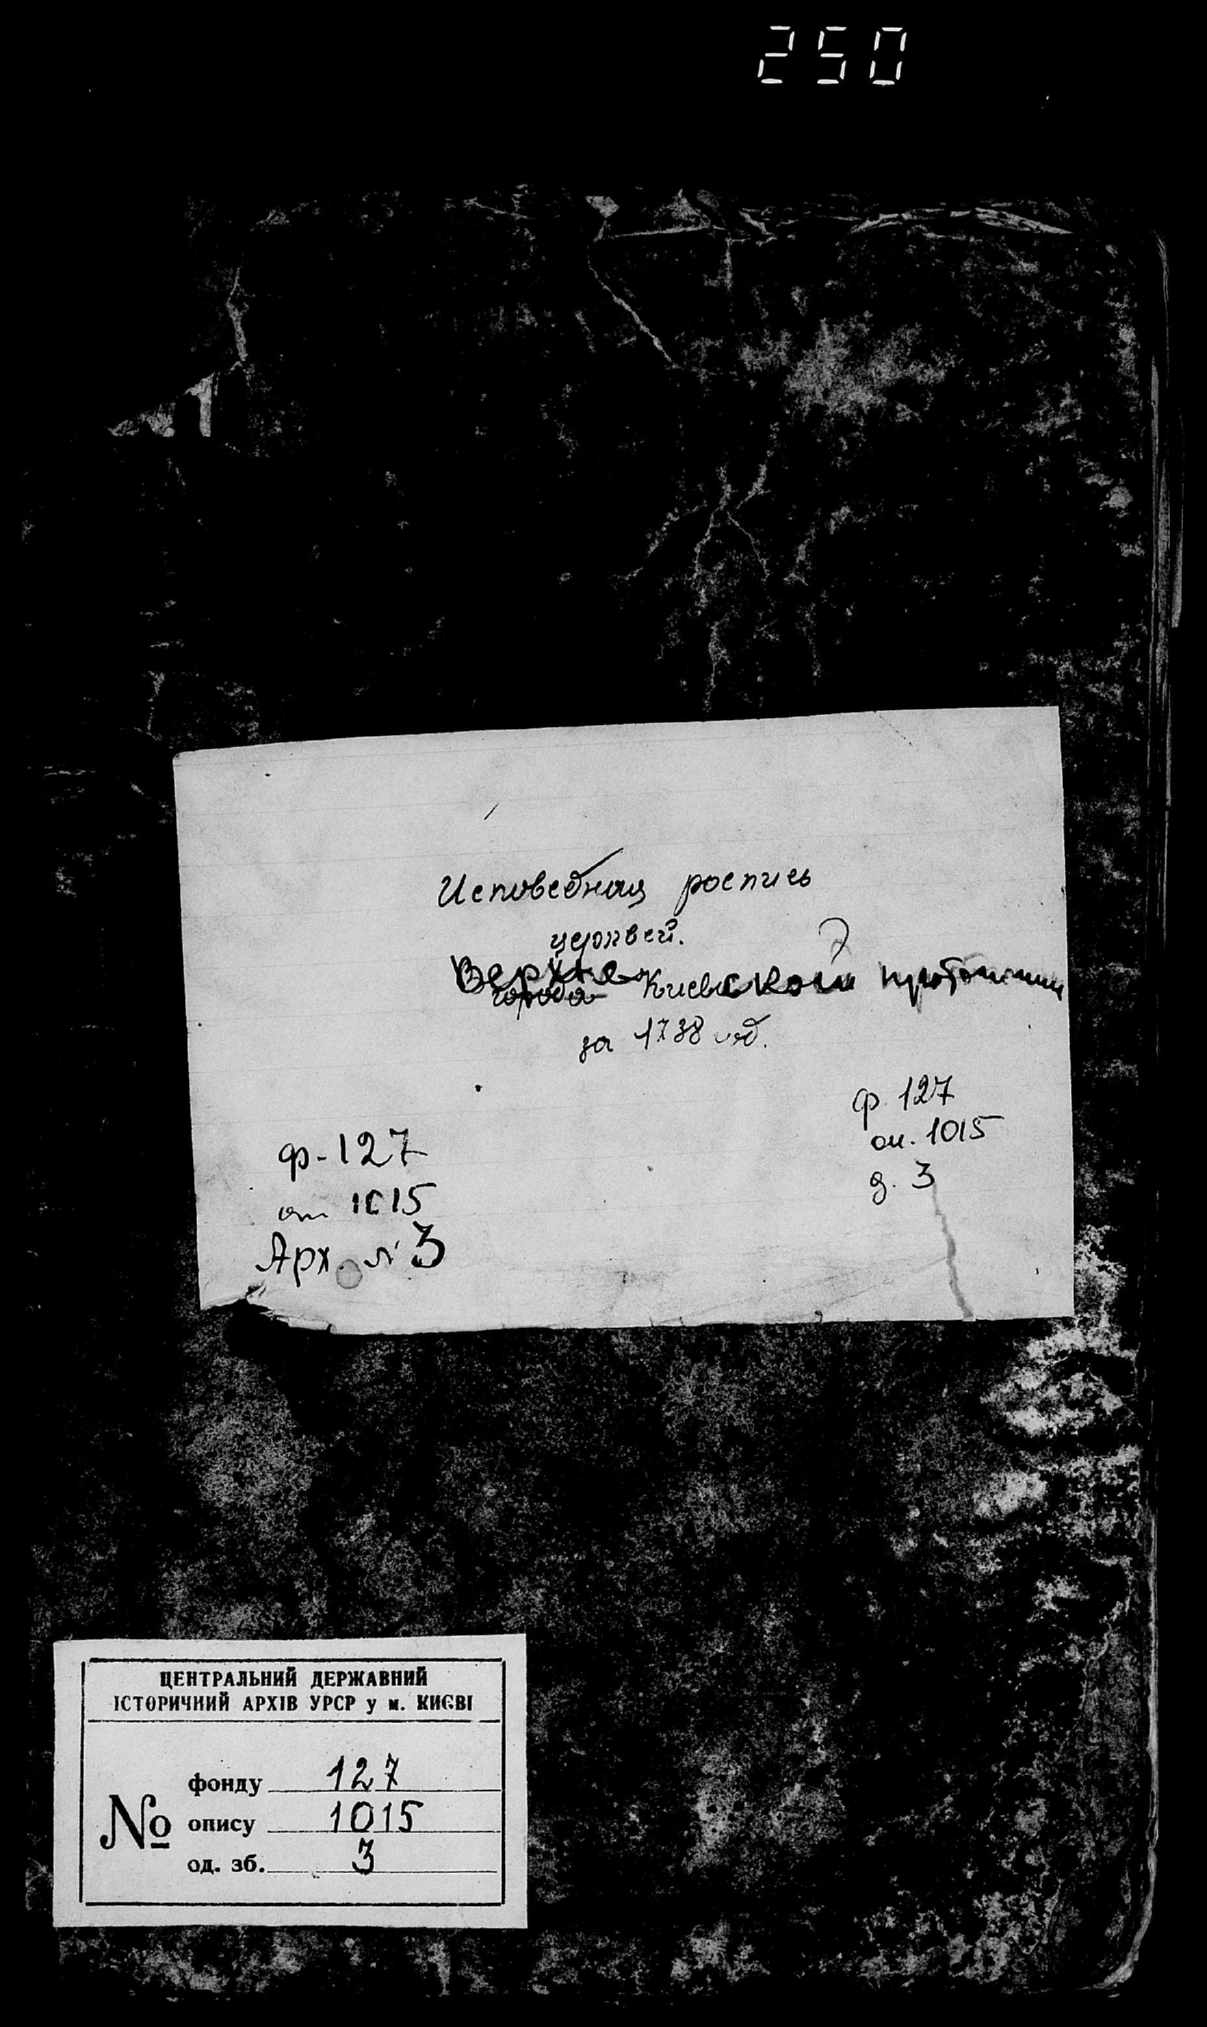 250
Исповедная роспись
церквей.
Верхне
города Киевской протопопии
за 1738 год.
ф 127
оп. 1015
д. 3
ф-127
оп 1015
Арх. № 3
ЦЕНТРАЛЬНИЙ ДЕРЖАВНИЙ
ІСТОРИЧНИЙ АРХІВ УРСР у м. КИЄВІ
№
фонду 127
опису 1015
од. зб. 3